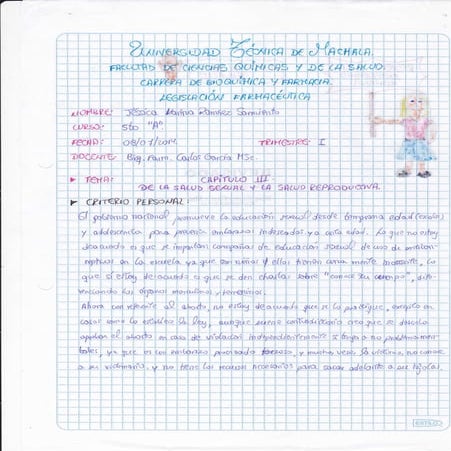 UNIVERSIDAD TÉCNICA DE MACHALA.
FACULTAD DE CIENCIAS QUÍMICAS Y DE LA SALUD.
CARRERA DE BIOQUÍMICA Y FARMACIA.
LEGISLACIÓN FARMACÉUTICA
NOMBRE: Jessica Ramirez Sarmiento
CURSO: 5to "A".
FECHA: 08/07/2014 TRIMESTRE: I
DOCENTE: Farm. Carlos García MSc.
▶ TEMA: CAPÍTULO III
DE LA SALUD SEXUAL Y LA SALUD REPRODUCTIVA.
▶ CRITERIO PERSONAL:
El gobierno nacional promueve la educación sexual desde temprana edad (escolar)
y adolescencia para prevenir embarazos indeseados a corta edad. Lo que no estoy
deacuerdo es que se impartan campañas de educación sexual de uso de anticon-
ceptivos en la escuela ya que son niños y ellos tienen una mente inocente, lo
que si estoy deacuerdo es que se den charlas sobre "conoce tu cuerpo", dife-
renciando los órganos masculinos y femeninos.
Ahora con referente al aborto, no estoy deacuerdo que se lo practique, excepto en
casos como lo establece la ley, aunque suene contradictorio creo que se debería
aprobar el aborto en caso de violación independientemente si tenga o no problemas men-
tales, ya que es un embarazo forzoso, y muchas veces la víctima no conoce
a su victimario, y no tiene los recursos necesarios para sacar adelante a su hijo(a).